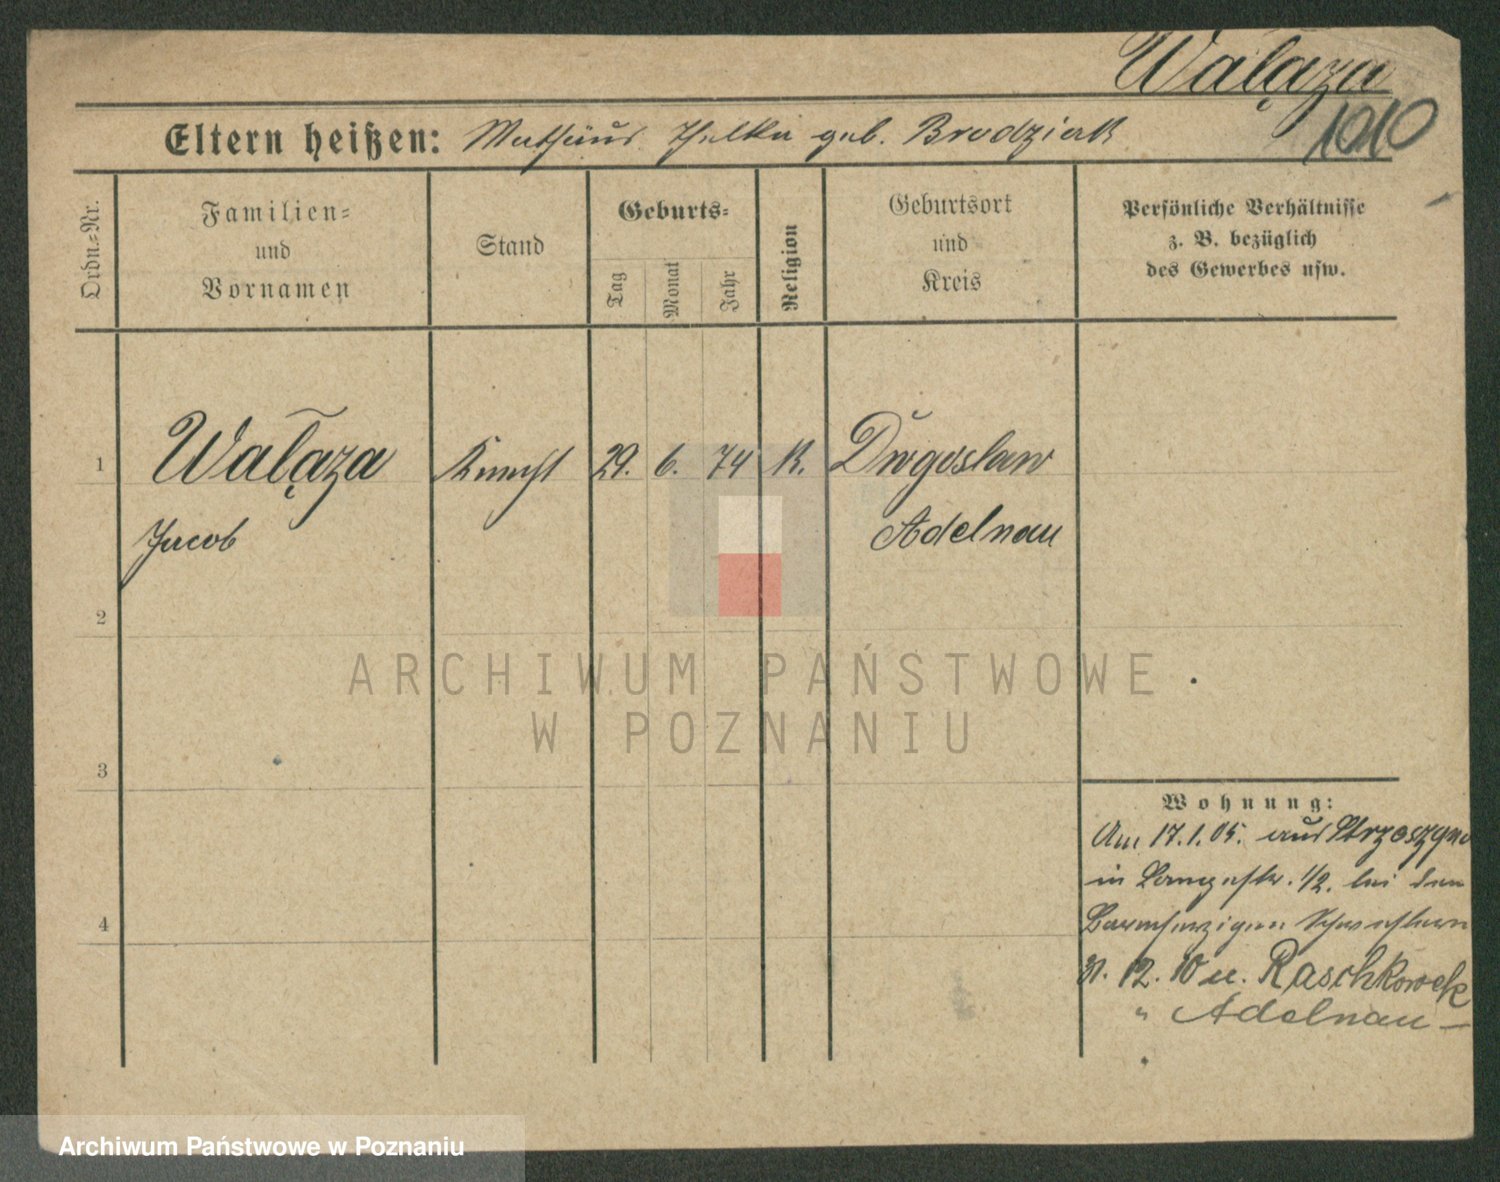 Waląza
1910
Eltern heißen: Mathäus Julka geb. Brodziak
Ordn.-Nr.
Familien-
und
Vornamen
Stand
Geburts-
Tag
Monat
Jahr
Religion
Geburtsort
und
Kreis
Persönliche Verhältnisse
z. B. bezüglich
des Gewerbes usw.
1
Waląza Knecht 29. 6. 74 K.
Jacob
Adelnau
2
ARCHIWUM PAŃSTWOWE
W POZNANIU
3
4
Wohnung:
Am 17.1.05. aus
in Langestr. 1/2. bei den
Barmherzigen Schwestern
31. 12. 10 u. Raschkowek
" Adelnau —
Archiwum Państwowe w Poznaniu